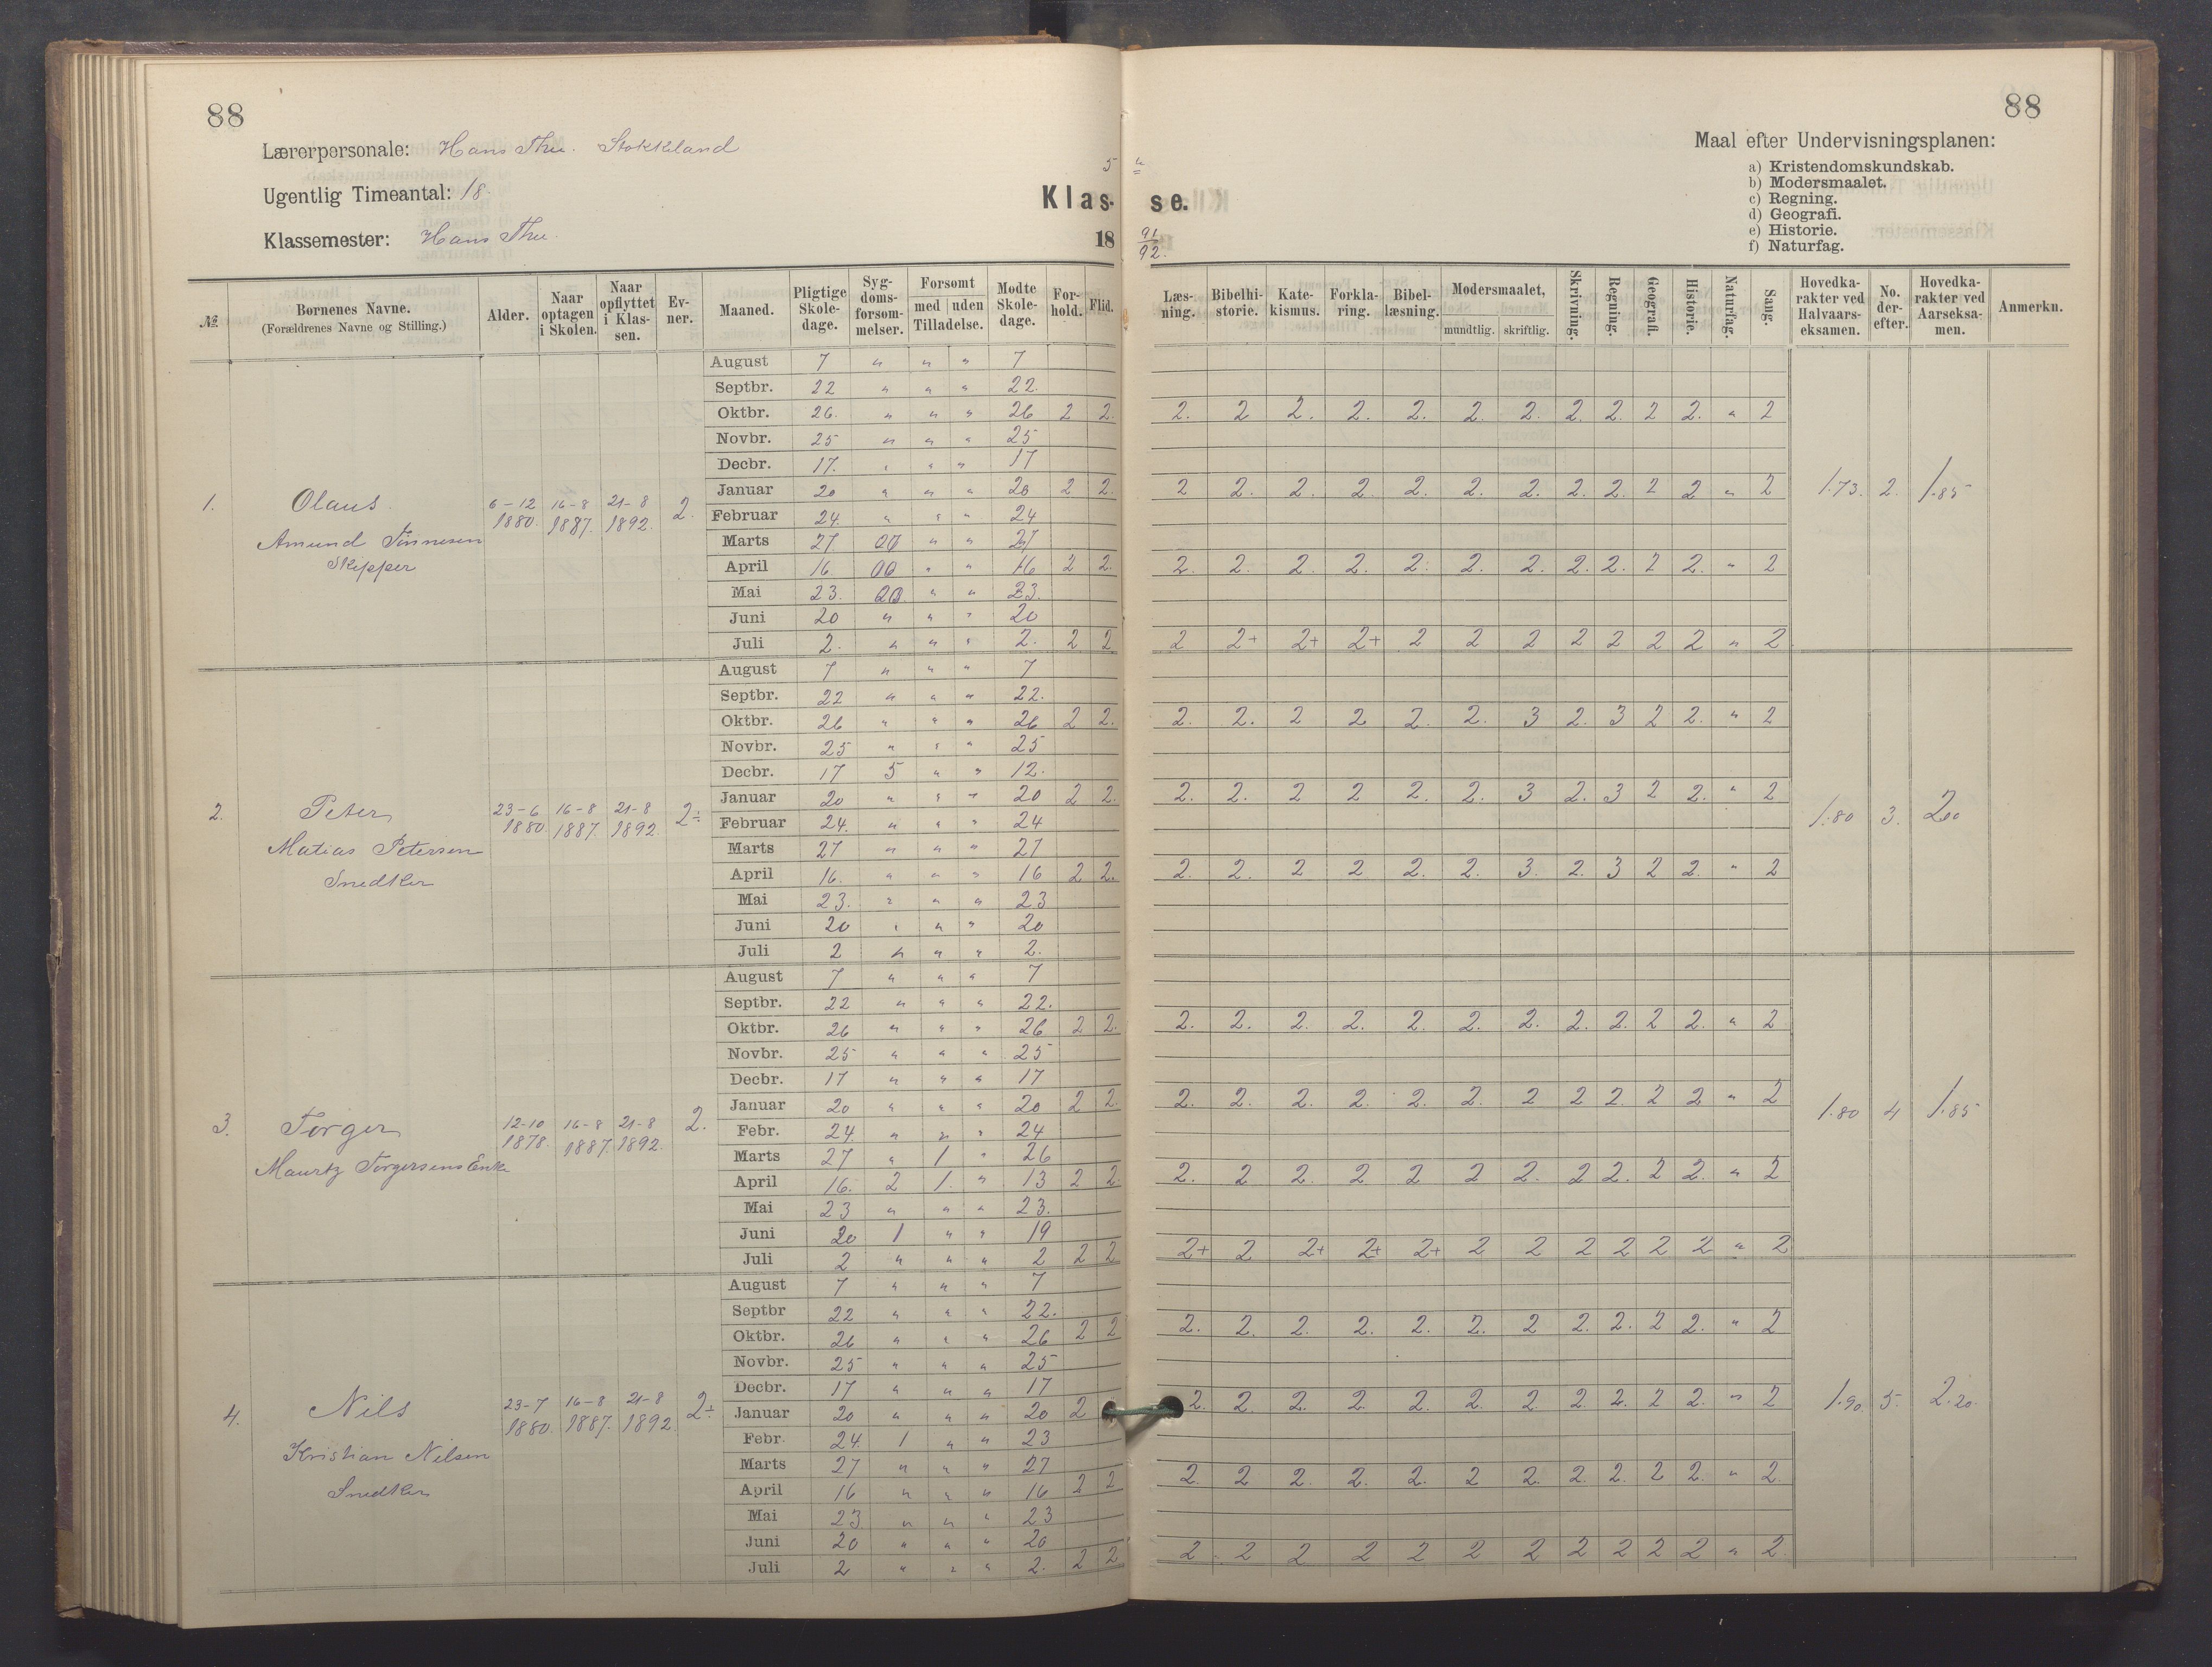 88
88
Lærerpersonale: Hans Thu. Stokkeland
Ugentlig Timeantal: 18.
Klassemester: Hans Thu.
5
Klas- se.
18 91/92.
Maal efter Undervisningsplanen:
a) Kristendomskundskab.
b) Modersmaalet.
c) Regning.
d) Geografi.
e) Historie.
f) Naturfag.
№ Børnenes Navne. (Forældrenes Navne og Stilling.) Alder. Naar optagen i Skolen. Naar opflyttet i Klassen. Evner. Maaned. Pligtige Skoledage. Sygdomsforsømmelser. Forsømt med uden Tilladelse. Mødte Skoledage. Forhold. Flid. Læsning. Bibelhistorie. Katekismus. Forklaring. Bibellæsning. Modersmaalet, mundtlig. skriftlig. Skrivning. Regning. Geografi. Historie. Naturfag. Sang. Hovedkarakter ved Halvaarseksamen. No. derefter. Hovedkarakter ved Aarseksamen. Anmerkn.
1. Olaus. Amund Tønnesen Skipper 6-12 1880. 16-8 1887. 21-8 1892. 2. 1.73. 2. 1.85
August 7 " " " 7
Septbr. 22 " " " 22.
Oktbr. 26. " " " 26 2 2. 2. 2 2. 2. 2. 2. 2. 2. 2. 2 2. " 2
Novbr. 25 " " " 25
Decbr. 17. " " " 17
Januar 20 " " " 20 2 2. 2 2. 2. 2. 2. 2. 2. 2. 2. 2 2 " 2
Februar 24. " " " 24
Marts 27. 00 " " 27
April 16. 00 " " 16 2 2. 2. 2. 2. 2. 2. 2. 2. 2. 2. 2 2. " 2
Mai 23. 00. " " 23.
Juni 20 " " " 20
Juli 2. " " " 2. 2. 2 2 2+ 2+ 2+ 2 2 2 2 2 2 2 " 2
2. Peter Matias Petersen Snedker 23-6 1880. 16-8 1887. 21-8 1892 2÷ 1.80 3. 2.00
August 7 " " " 7
Septbr. 22 " " " 22.
Oktbr. 26 " " " 26 2 2. 2. 2. 2 2 2. 2. 3 2. 3 2 2. " 2
Novbr. 25 " " " 25
Decbr. 17 5 " " 12.
Januar 20 " " " 20 2 2. 2. 2. 2 2 2. 2. 3 2. 3 2 2. " 2
Februar 24. " " " 24
Marts 27 " " " 27
April 16. " " " 16 2 2. 2. 2. 2 2 2. 2. 3. 2. 3 2 2. " 2
Mai 23. " " " 23
Juni 20 " " " 20
Juli 2 " " " 2.
3. Torger Mauritz Torgersens Enke 12-10 1878. 16-8 1887. 21-8 1892. 2. 1.80 4 1.85
August 7 " " " 7
Septbr. 22 " " " 22.
Oktbr. 26 " " " 26 2 2. 2. 2. 2. 2. 2. 2. 2. 2. 2. 2 2. " 2
Novbr. 25 " " " 25
Decbr. 17 " " " 17
Januar 20 " " " 20 2 2. 2. 2. 2. 2. 2. 2. 2 2 2. 2 2 " 2
Febr. 24. " " " 24
Marts 27 " 1 " 26
April 16. 2 1. " 13 2 2. 2. 2 2. 2 2 2 2. 2 2. 2 2. " 2
Mai 23 " " " 23.
Juni 20 1 " " 19
Juli 2 " " " 2 2 2 2+ 2 2+ 2+ 2+ 2 2 2 2 2 2 " 2
4. Nils Kristian Nilsen Snedker 23-7 1880. 16-8 1887. 21-8 1892. 2÷ 1.90. 5. 2.20.
August 7 " " " 7
Septbr 22 " " " 22.
Oktbr. 26 " " " 26 2 2 2. 2. 2. 2. 2. 2. 2 2. 2. 2 2. " 2
Novbr. 25 " " " 25
Decbr. 17 " " " 17
Januar 20 " " " 20 2 2. 2. 2. 2. 2. 2 2 2. 2. 2 2. " 2
Febr. 24. 1 " " 23
Marts 27 " " " 27
April 16 " " " 16 2 2 2. 2 2. 2. 2. 2 2. 2. 2. 2 2. " 2.
Mai 23 " " " 23
Juni 20 " " " 20
Juli 2 " " " 2. 2 2 2. 2 2 2 2 2 2 2 2 2 2 " 2.